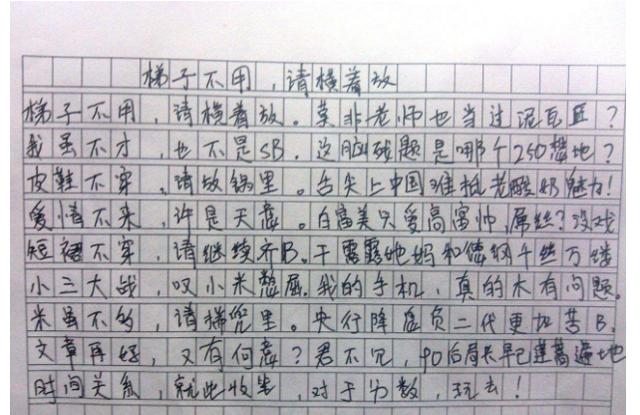 梯子不用，请横着放
梯子不用，请横着放。莫非老师也当过泥瓦匠？
我虽不才，也不是SB。这脑残题是哪个250想地？
皮鞋不穿，请放锅里。舌尖上中国难抵老酸奶魅力！
爱情不来，许是天意。白富美只爱高富帅，屌丝？没戏
短裙不穿，请继续齐B。干露露她妈和德纲千丝万缕
小三大战，叹小米憋屈。我的手机，真的木有问题。
米虽不多，请揣兜里。央行降息负二代更加苦B。
文章再好，又有何意？君不见，90后局长早已遍地
时间关系，就此收笔，对于分数，玩去！